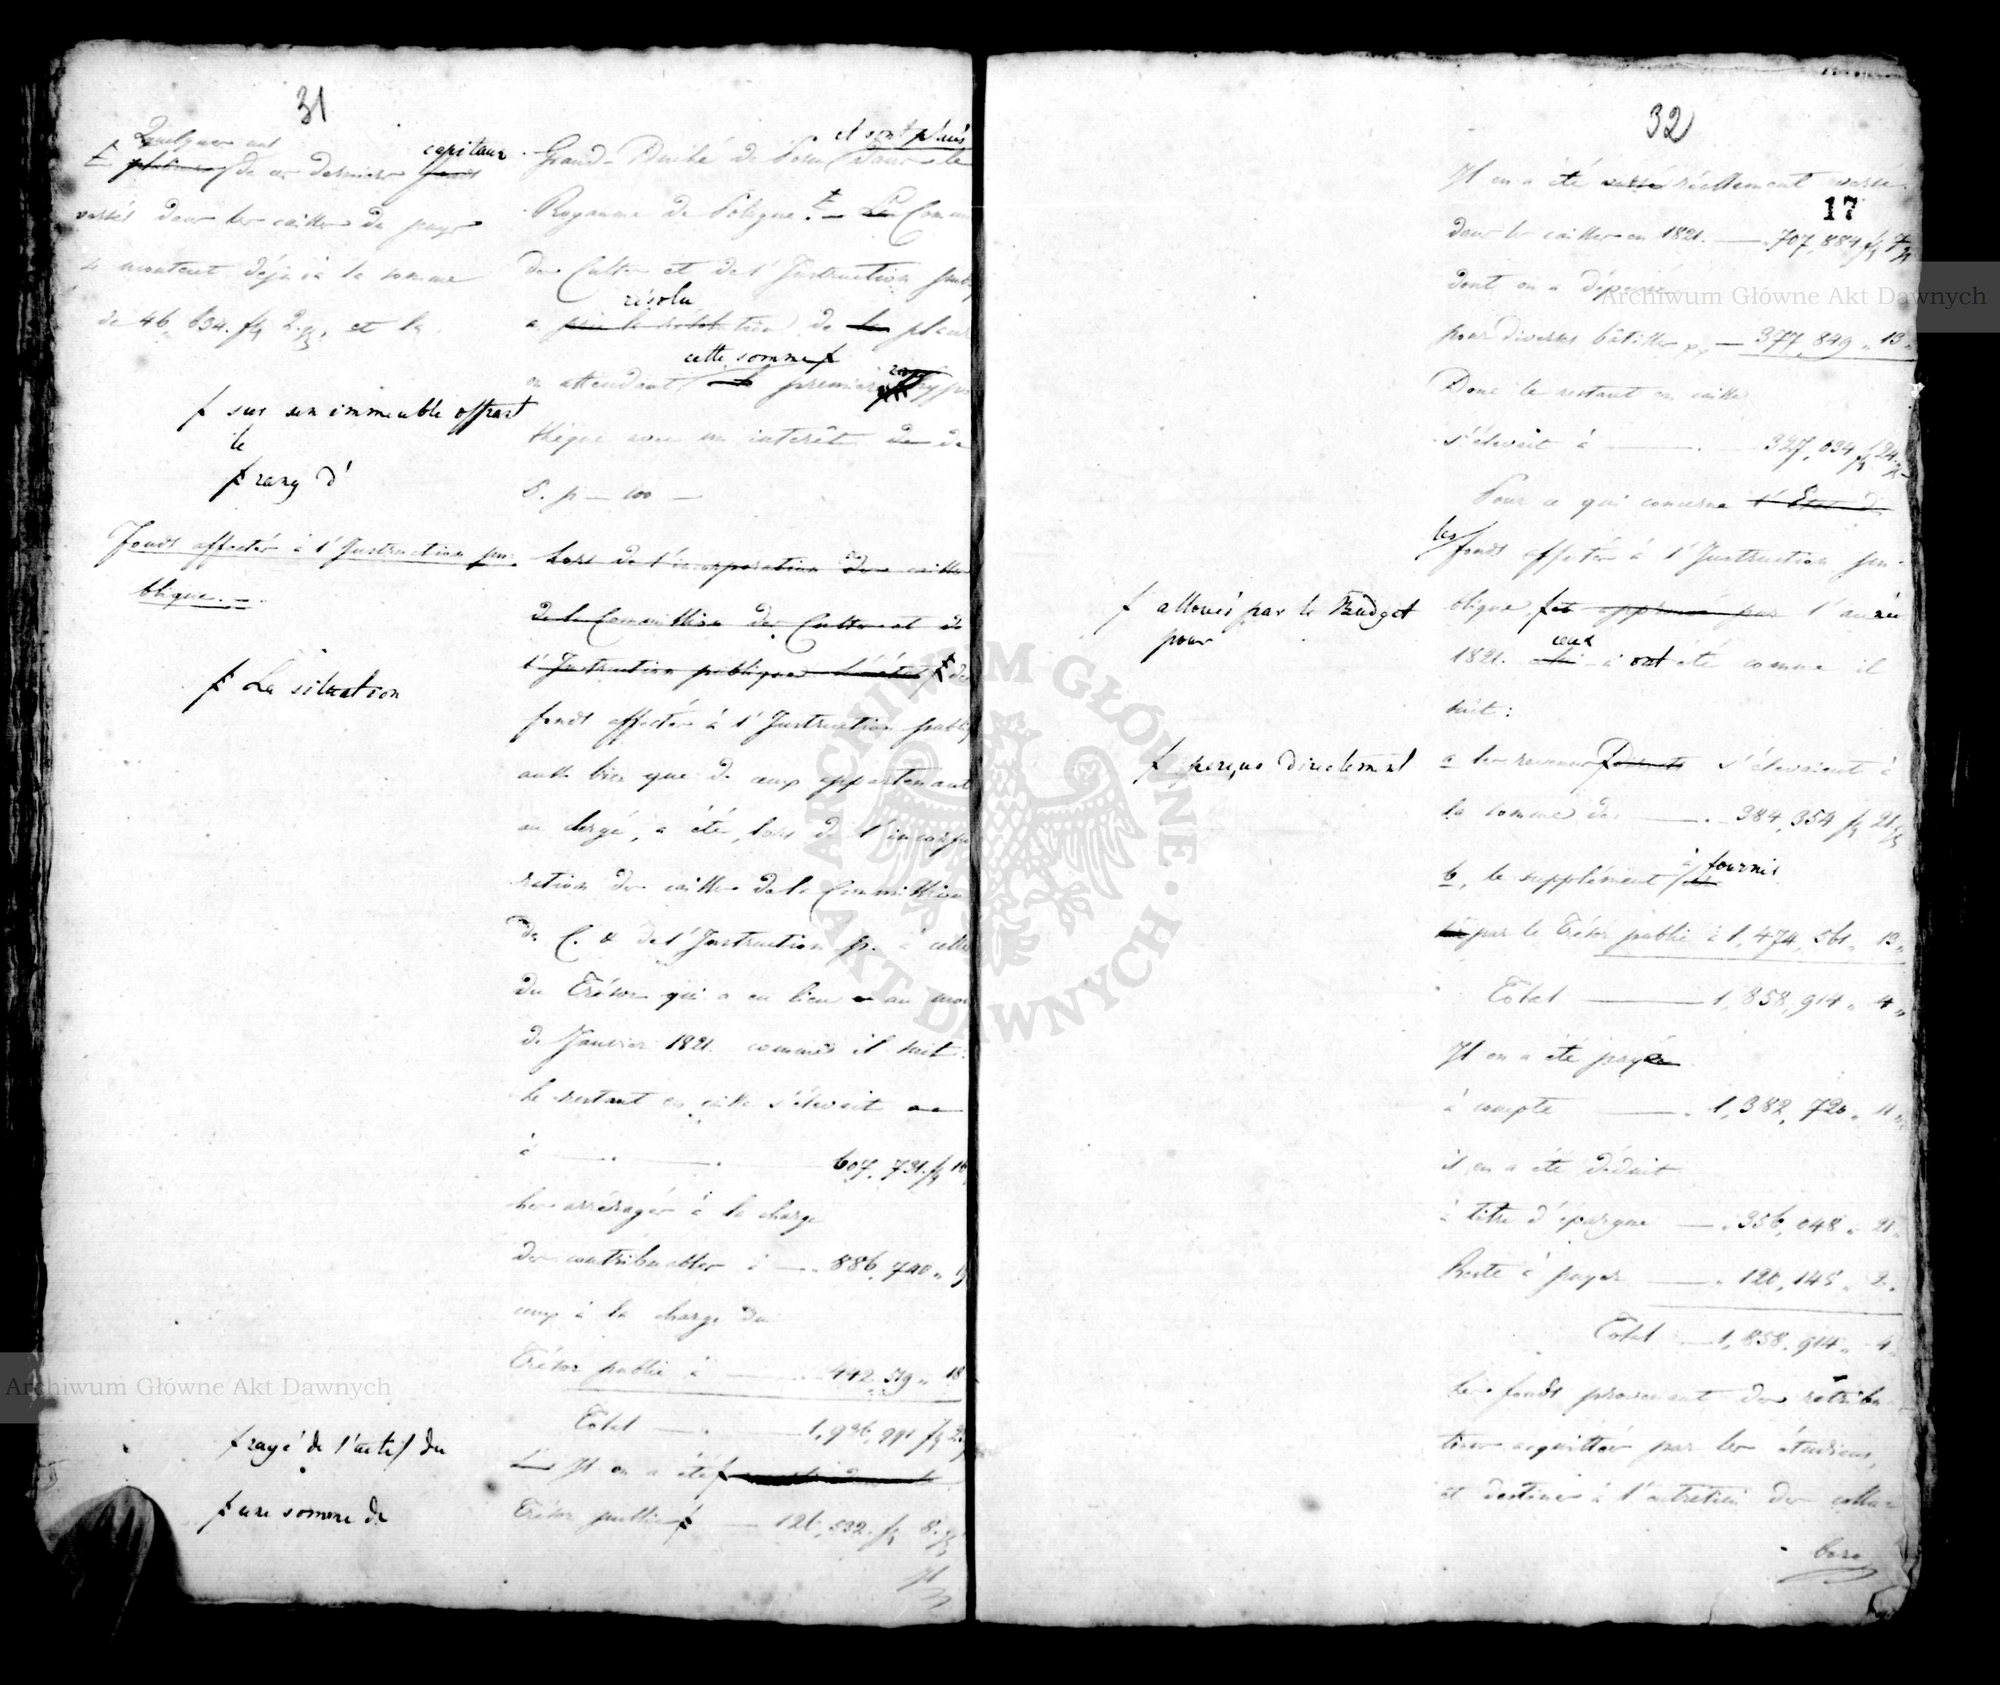 31
Quelques uns
de ces derniers fonds capitaux
versés dans les caisses du pays
se montent déjà à la somme
de 46,634. fl 2. gr, et la
f sur un immeuble offrant
le
f rang d'
Fonds affectés à l'Instruction pu-
blique. —
f La situation
f rayé de l'actif du
f une somme de
et sont placés
Grand-Duché de Posen dans le
Royaume de Pologne. — La Com
des Cultes et de l'Instruction pub
résolu
a pris la résolution de la placer
cette somme f
en attendant la première hypo
thèque avec un intérêt de de
5. p — 100 —
Lors de l'incorporation des caisses
de la Commission des Cultes et de
l'Instruction publique l'état f des
fonds affectés à l'Instruction publiq
aussi bien que de ceux appartenant
au clergé, a été, lors de l'incorpo
ration des caisses de la Commission
des C. & de l'Instruction p. à celle
du Trésor qui a eu lieu au mois
de Janvier 1821. comme il suit:
Le restant en caisse s'élevait
à — 607,731. fl 16
Les arrérages à la charge
des contribuables à — 886,740 „ 19
ceux à la charge du
Trésor public à — 442,519 „ 18
Total — 1,936,991 fl 2
Il en a été f
Trésor public f — 126,532. fl 8. gr
Il
32
17
Il en a été versé réellement versé
dans les caisses en 1821. — 707,884 fl 7 gr
dont on a dépensé
pour diverses bâtisses — 377,849 „ 13 „
Donc le restant en caisse
s'élevait à — 327,034 fl 24. gr
Pour ce qui concerne l'Etat des
les fonds affectés à l'Instruction pu-
f alloués par le Budget
pour
blique, fut approuvé par l'année
1821. ceux-ci ont été comme il
suit:
f perçus directement
a les revenus s'élevaient à
la somme de — 384,354 fl 21 gr
b, le supplément à fournir
par le Trésor public à 1,474,561 „ 13 „
Total — 1,858,914 „ 4 „
Il en a été payé
à compte — 1,382,720 „ 11 „
il en a été déduit
à titre d'épargne — 356,048 „ 21 „
Reste à payer — 120,145 „ 2 „
Total — 1,858,914 „ 4 „
Les fonds provenant des rétribu-
tions acquittées par les étudiens,
et destinés à l'entretien des colla-
bora
Archiwum Główne Akt Dawnych
Archiwum Główne Akt Dawnych
ARCHIWUM GŁÓWNE
AKT DAWNYCH